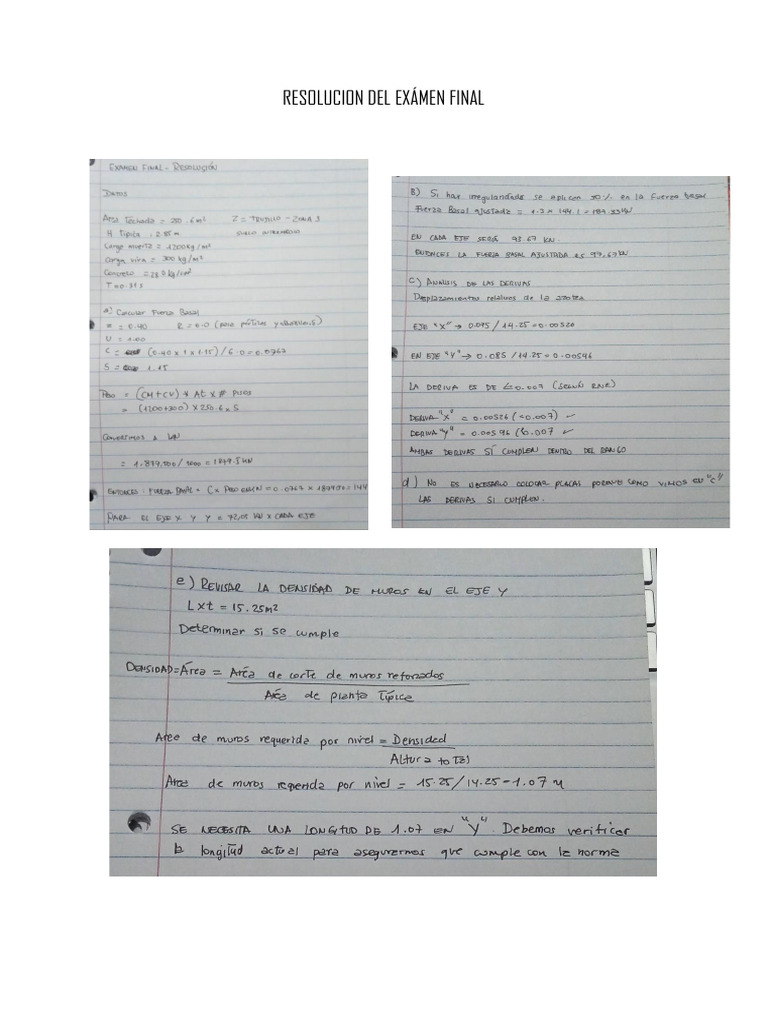 RESOLUCION DEL EXÁMEN FINAL
EXAMEN FINAL - RESOLUCIÓN
DATOS
Area Techada = 250.6m² Z = TRUJILLO - ZONA 3
H Típica : 2.85 m SUELO INTERMEDIO
Carga muerta = 1200kg/m²
Carga viva = 300 kg/m²
Concreto =
T=0.31s
a) Calcular Fuerza Basal
U = 1.00
C = (0.40 x 1 x 1.15) / 6.0 = 0.0767
S = 1.15
PESO = (CM+CV) * At * # PISOS
= (1200+300) x 250.6 x 5
CONVERTIMOS A KN
PARA EL EJE X Y Y = 72.05 KN x CADA EJE
B) Si hay irregularidades se aplican 30% en la fuerza basal
Fuerza Basal ajustada = 1.3 x 144.1 =
EN CADA EJE SERÍA 93.67 KN.
ENTONCES LA FUERZA BASAL AJUSTADA ES 93,67 KN
C) ANALISIS DE LAS DERIVAS
Desplazamientos relativos de la azotea
EJE "X" → 0.075 / 14.25 = 0.00526
EN EJE "Y" → 0.085 / 14.25 = 0.00596
LA DERIVA ES DE ∠0.007 (SEGÚN RNE)
DERIVA "X" = 0.00526 (<0.007) ✓
DERIVA "Y" = 0.00596 (<0.007 ✓
AMBAS DERIVAS SÍ CUMPLEN DENTRO DEL RANGO
d) NO ES NECESARIO COLOCAR PLACAS PORQUE COMO VIMOS EN "C"
LAS DERIVAS SI CUMPLEN.
e) REVISAR LA DENSIDAD DE MUROS EN EL EJE Y
Lxt = 15.25m²
Determinar si se cumple
DENSIDAD = Área = Area de corte de muros reforzados
Area de planta típica
Area de muros requerida por nivel = Densidad
Altura total
Area de muros requerida por nivel = 15.25/14.25 = 1.07 m
SE NECESITA UNA LONGITUD DE 1.07 EN "Y". Debemos verificar
la longitud actual para asegurarnos que cumple con la norma